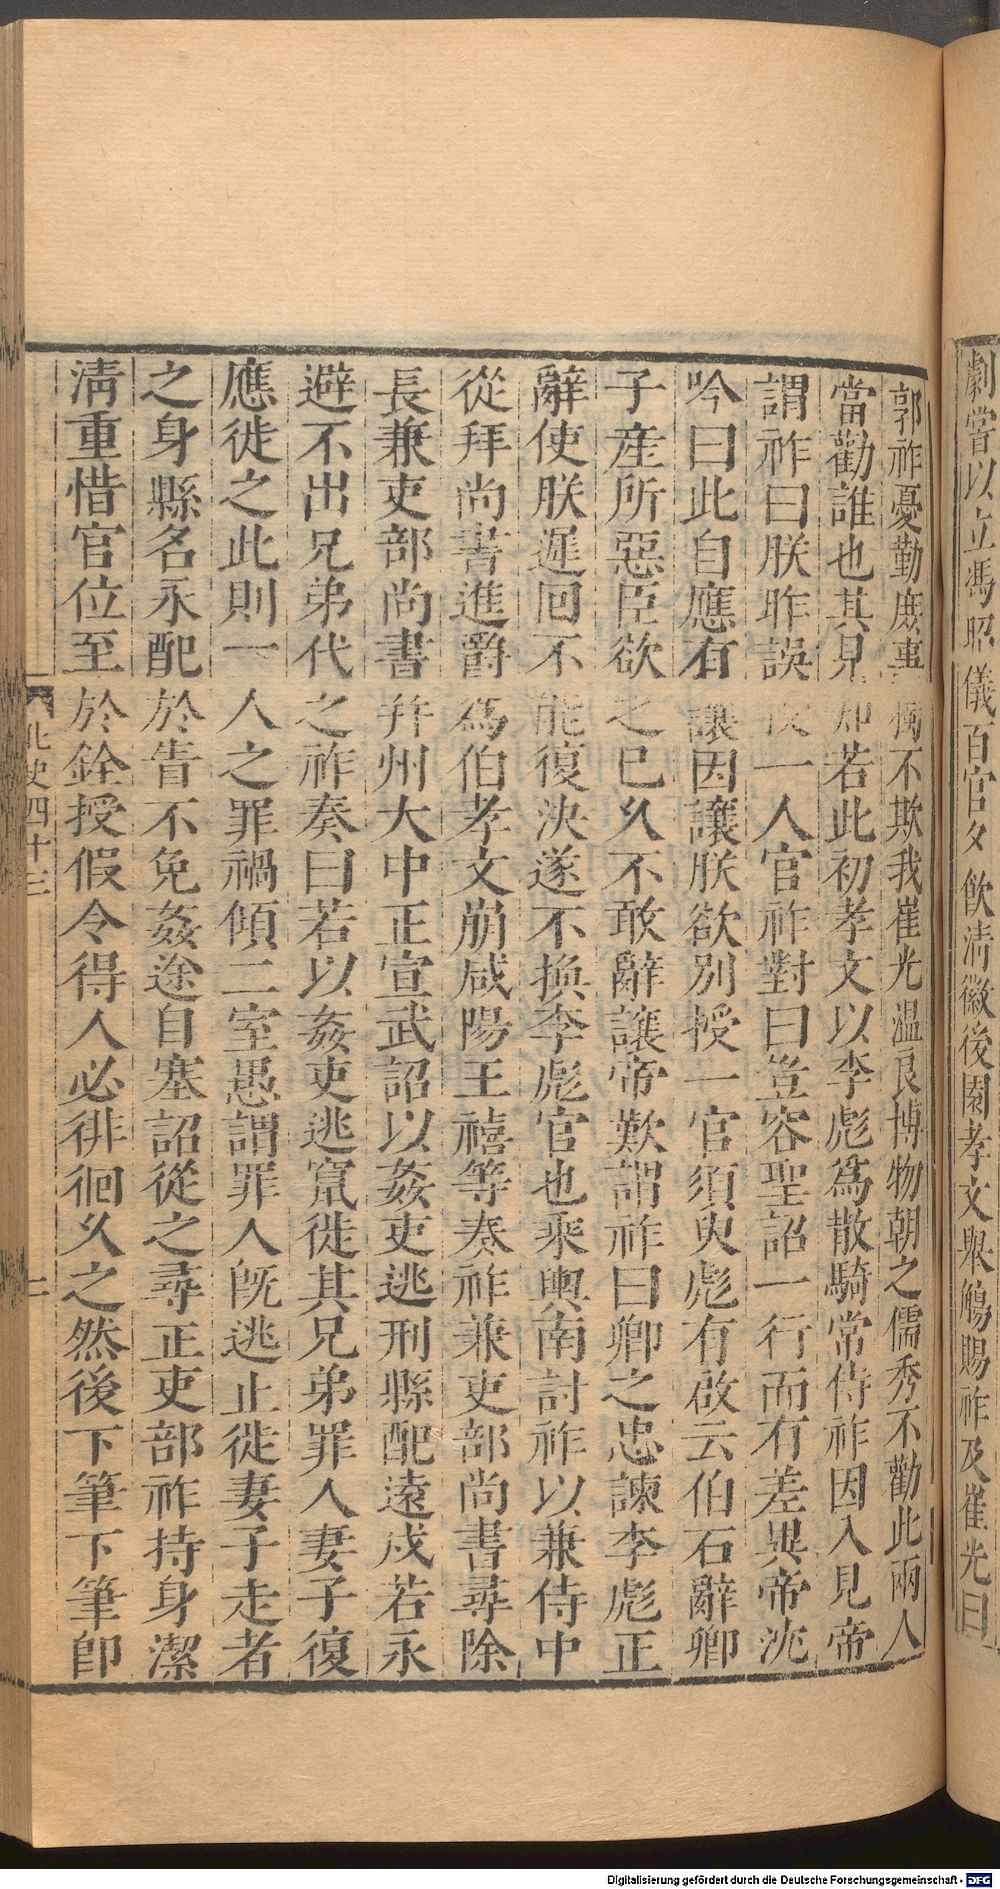 劇嘗以立馮昭儀百官夕飲淸徽後園孝文舉觴賜祚及崔光曰
郭祚憂勤庶事獨不欺我崔光温良博物朝之儒秀不勸此兩人
當勸誰也其見知若此初孝文以李彪爲散騎常侍祚因入見帝
謂祚曰朕昨誤授一人官祚對曰豈容聖詔一行而有差異帝沈
吟曰此自應有讓因讓朕欲別授一官須臾彪有啟云伯石辭卿
子產所惡臣欲之已久不敢辭讓帝歎謂祚曰卿之忠諫李彪正
辭使朕遲回不能復決遂不換李彪官也乘輿南討祚以兼侍中
從拜尚書進爵爲伯孝文崩咸陽王禧等奏祚兼吏部尚書尋除
長兼吏部尚書幷州大中正宣武詔以姦吏逃刑縣配遠戍若永
避不出兄弟代之祚奏曰若以姦吏逃竄徙其兄弟罪人妻子復
應徙之此則一人之罪禍傾二室愚謂罪人旣逃止徙妻子走者
之身縣名永配於眚不免姦途自塞詔從之尋正吏部祚持身潔
淸重惜官位至於銓授假令得人必徘徊久之然後下筆下筆卽
北史四十三
二
Digitalisierung gefördert durch die Deutsche Forschungsgemeinschaft - DFG